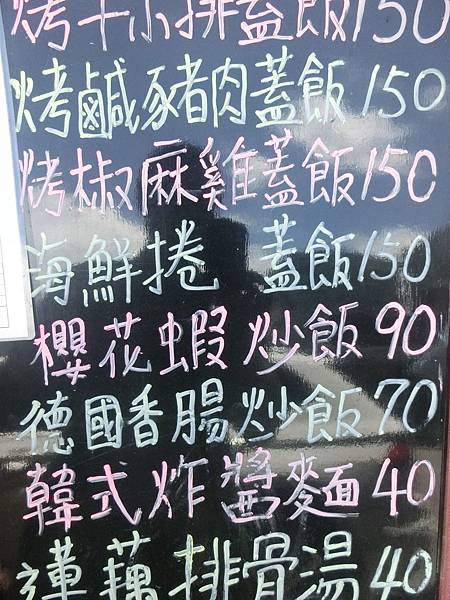 烤牛小排蓋飯150
烤鹹豬肉蓋飯150
烤椒麻雞蓋飯150
海鮮捲 蓋飯150
櫻花蝦炒飯90
德國香腸炒飯70
韓式炸醬麵40
蓮藕排骨湯40